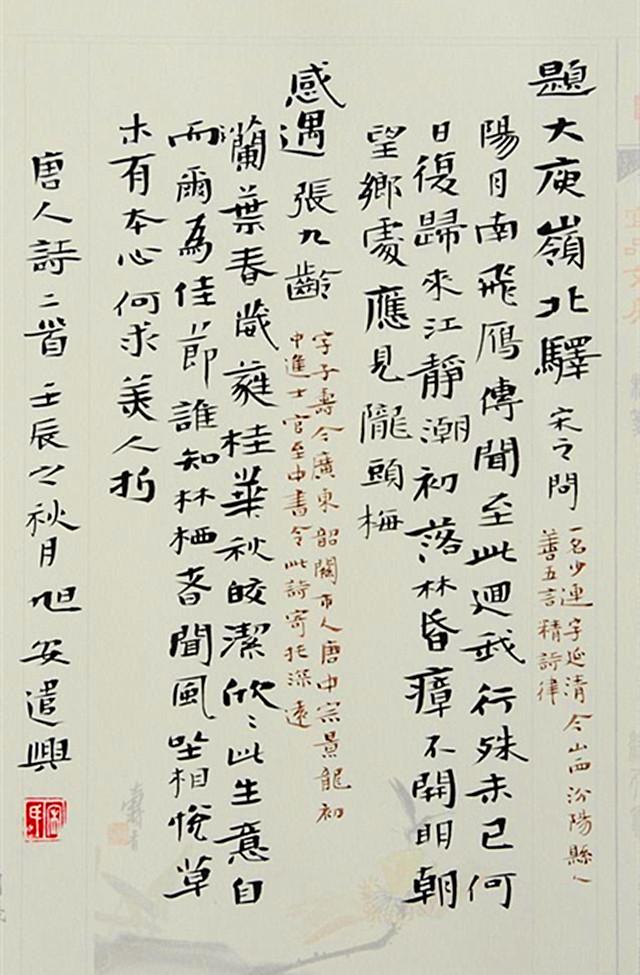 題大庾嶺北驛 宋之問
一名少連字延清今山西汾陽縣人
善五言精詩律
陽月南飛鴈傳聞至此迴我行殊未已何
日復歸來江靜潮初落林昏瘴不開明朝
望鄉處應見隴頭梅
感遇 張九齡
字子壽今廣東韶關市人唐中宗景龍初
中進士官至中書令此詩寄托深遠
蘭葉春葳蕤桂華秋皎潔欣〻此生意自
而爾為佳節誰知林栖者聞風坐相悅草
木有本心何求美人折
唐人詩二首壬辰之秋月旭安遣興